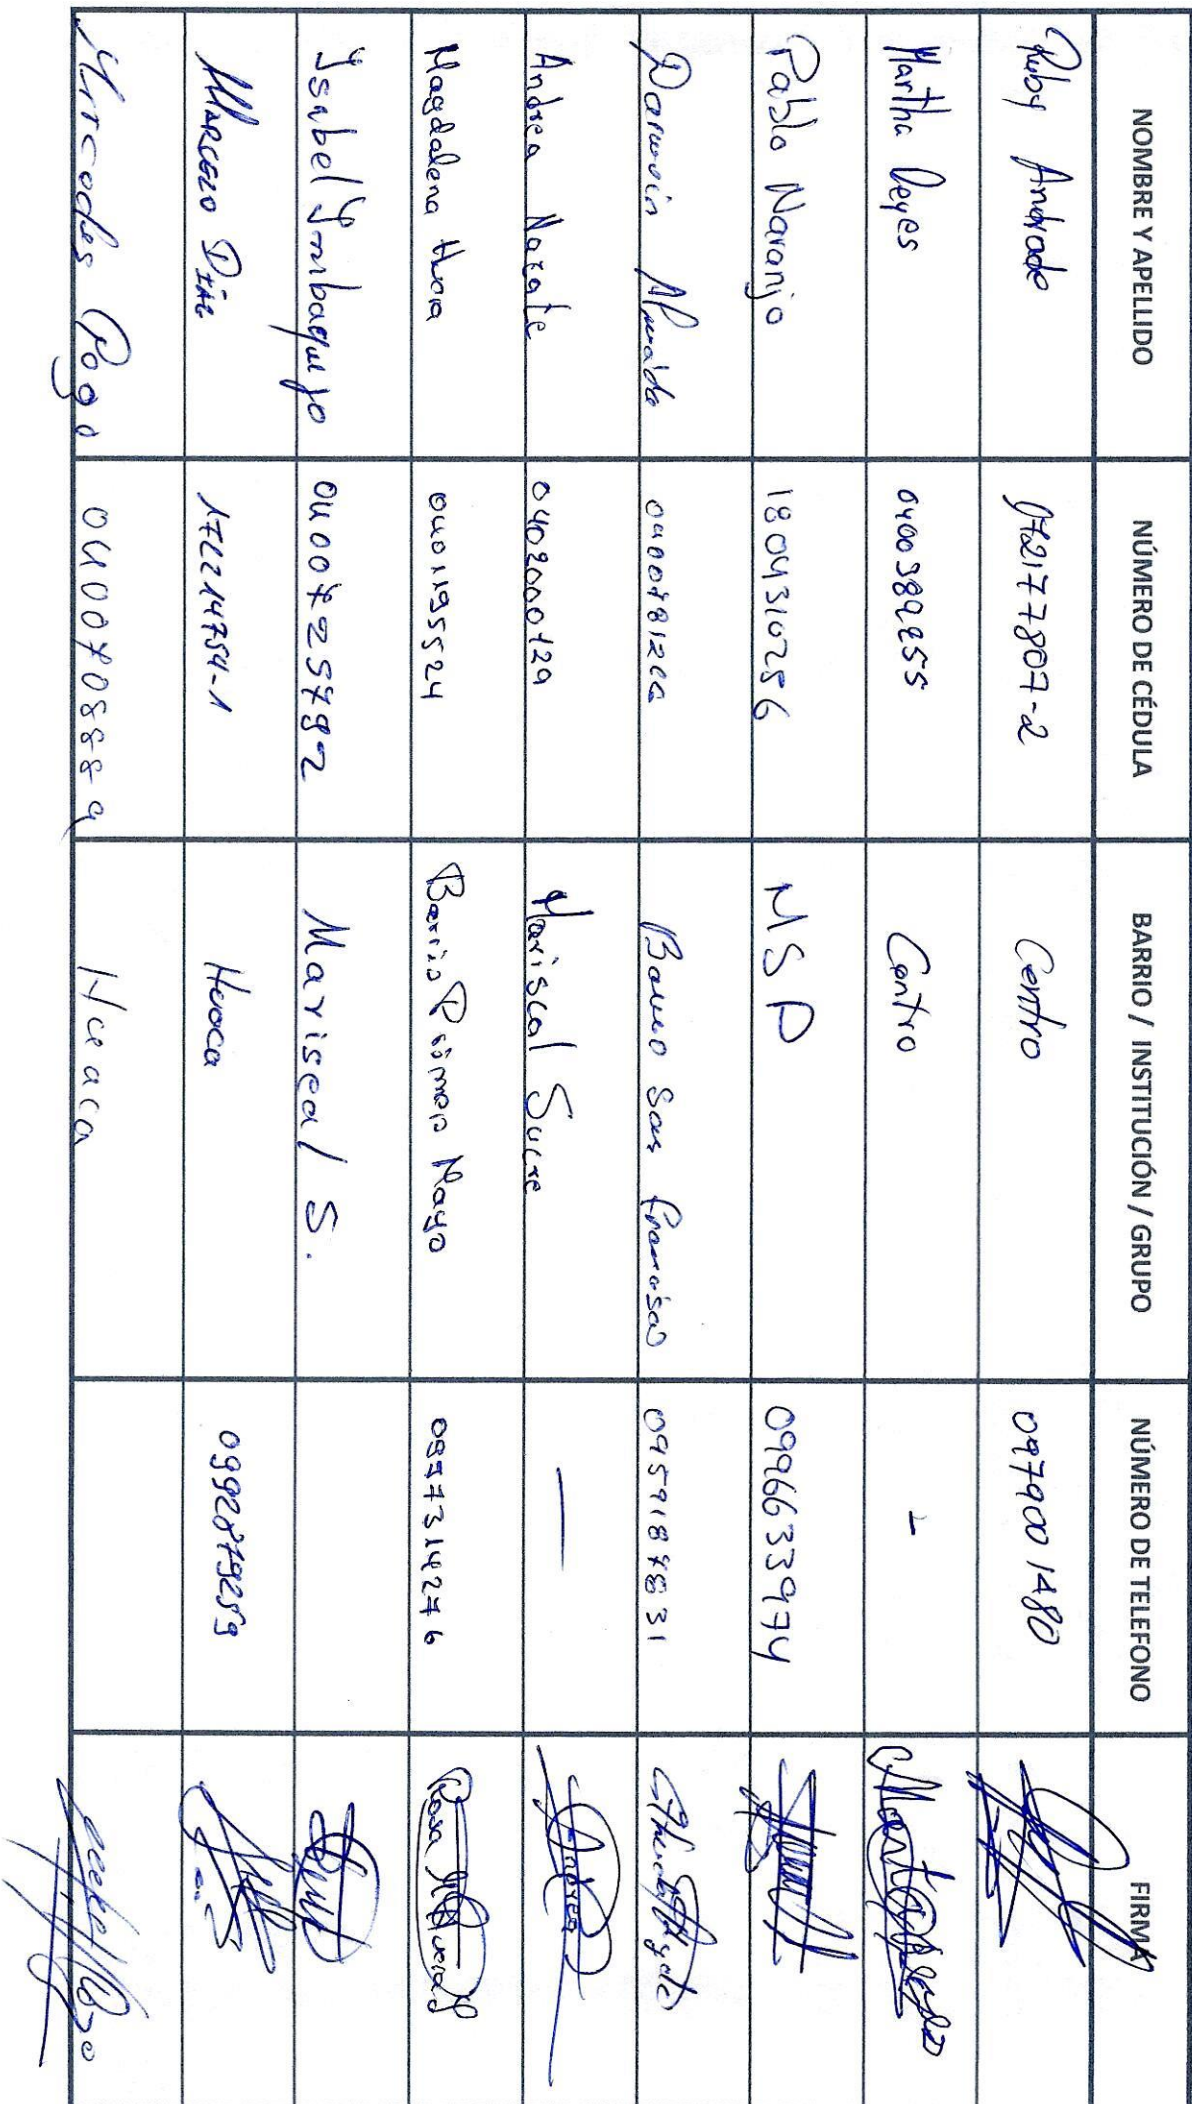 NOMBRE Y APELLIDO NÚMERO DE CÉDULA BARRIO / INSTITUCIÓN / GRUPO NÚMERO DE TELEFONO FIRMA
Ruby Andrade 172177807-2 Centro 0979001480
Martha Reyes 0400389255 Centro -
Pablo Naranjo 1804310256 MSP 0996633974
Barrio San Francisco 0959187831
Andrea Narate 0402000129 Mariscal Sucre — Andrea
Magdalena 0401195524 Barrio Primero Mayo 0997314276 Rosa
Isabel Ymbaquejo 0400725792 Mariscal S.
MARCELO DÍAZ 172214754-1 Huaca 0992879259
Pogo 0400708889 Huaca